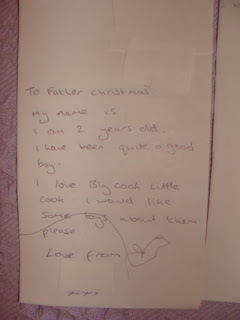 To Father Christmas
My name is
I am 2 years old.
I have been quite a good
boy.
I love Big Cook Little
Cook I would like
some toys about them
please
Love from